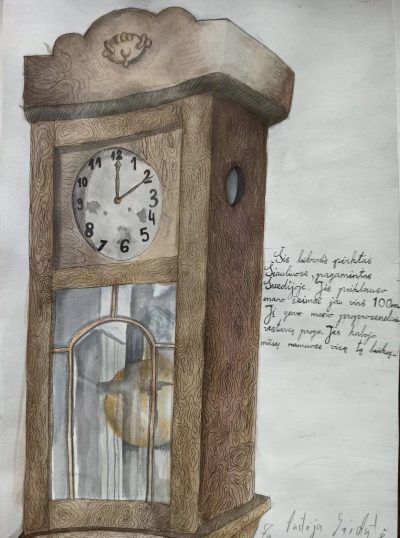 11 12 1
10 2
9 3
8 4
7 6 5
Šis laikrodis pirktas
Šiauliuose, pagamintas
Švedijoje. Jis priklauso
mano šeimai jau virš 100m.
Jį gavo mano proproseneliai
vestuvių proga. Jis kabojo
mūsų namuose visą tą laiką.